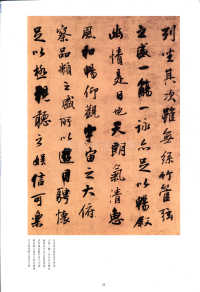 列坐其次雖無絲竹管弦
之盛一觴一詠亦足以暢敘
幽情是日也天朗氣清惠
風和暢仰觀宇宙之大俯
察品類之盛所以遊目騁懷
足以極視聽之娛信可樂